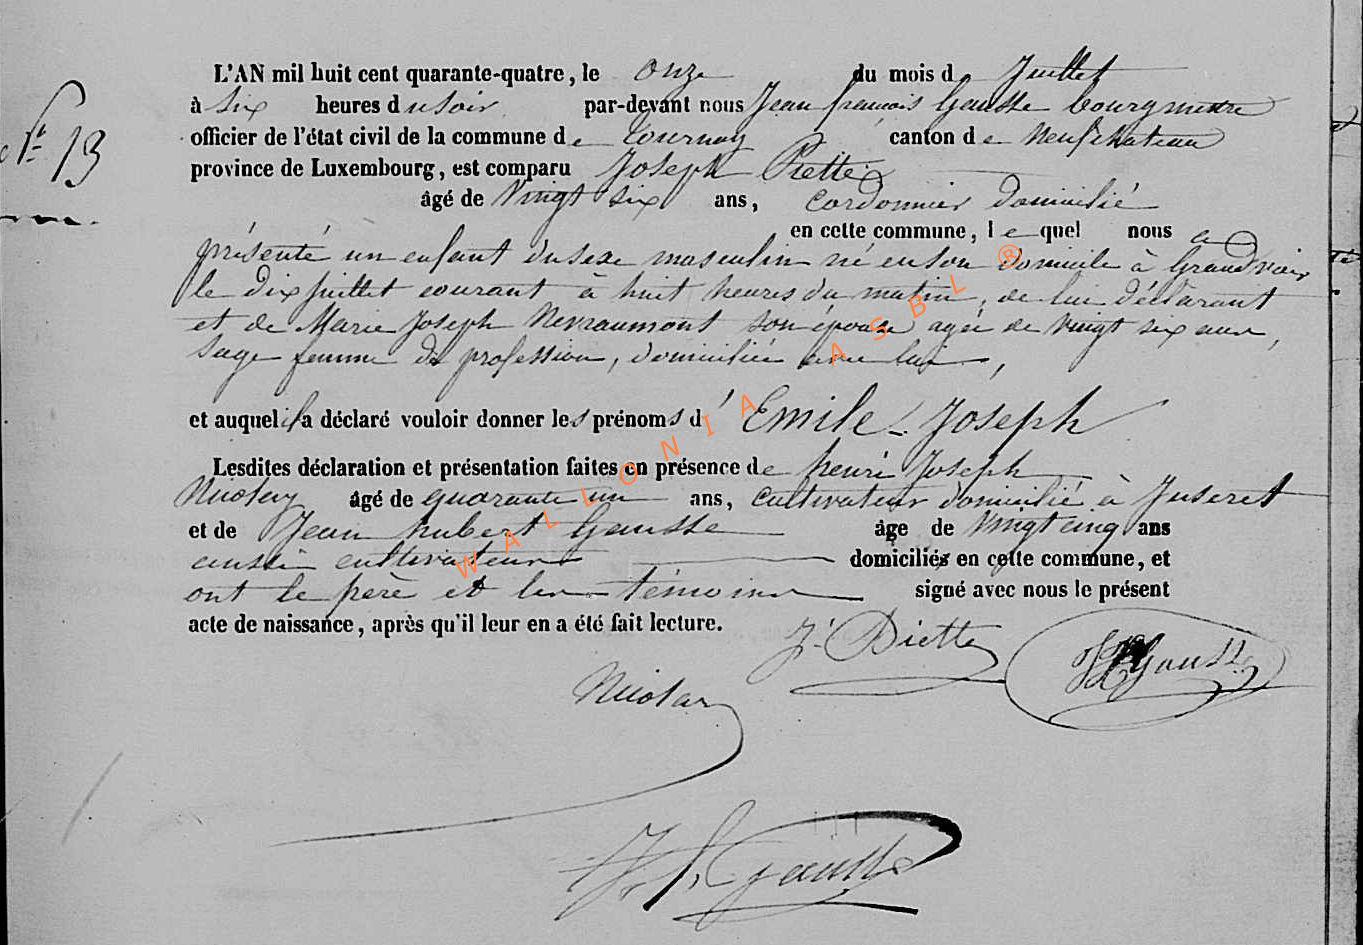 L'AN mil huit cent quarante-quatre, le onze du mois d Juillet
à six heures du soir par-devant nous Jean françois Gausse bourgmestre
N° 13
officier de l'état civil de la commune de Tournay canton de Neufchateau
province de Luxembourg, est comparu Joseph Piette
âgé de Vingt six ans, cordonnier domicilié
en cette commune, lequel nous a
présenté un enfant du sexe masculin né en son domicile à Grandvoir
le dix juillet courant à huit heures du matin, de lui déclarant
et de Marie Joseph Nevraumont son épouse agée de vingt six ans,
sage femme de profession, domiciliée avec lui,
et auquel il a déclaré vouloir donner les prénoms d'Emile-Joseph
Lesdites déclaration et présentation faites en présence de henri Joseph
Nicolay âgé de quarante un ans, cultivateur domicilié à Juseret
et de Jean hubert Gausse âge de Vingt cinq ans
aussi cultivateur domiciliés en cette commune, et
ont le père et les témoins signé avec nous le présent
acte de naissance, après qu'il leur en a été fait lecture.
J. Piette
Gausse
Nicolay
J. f. Gausse
WALLONIA ASBL ®